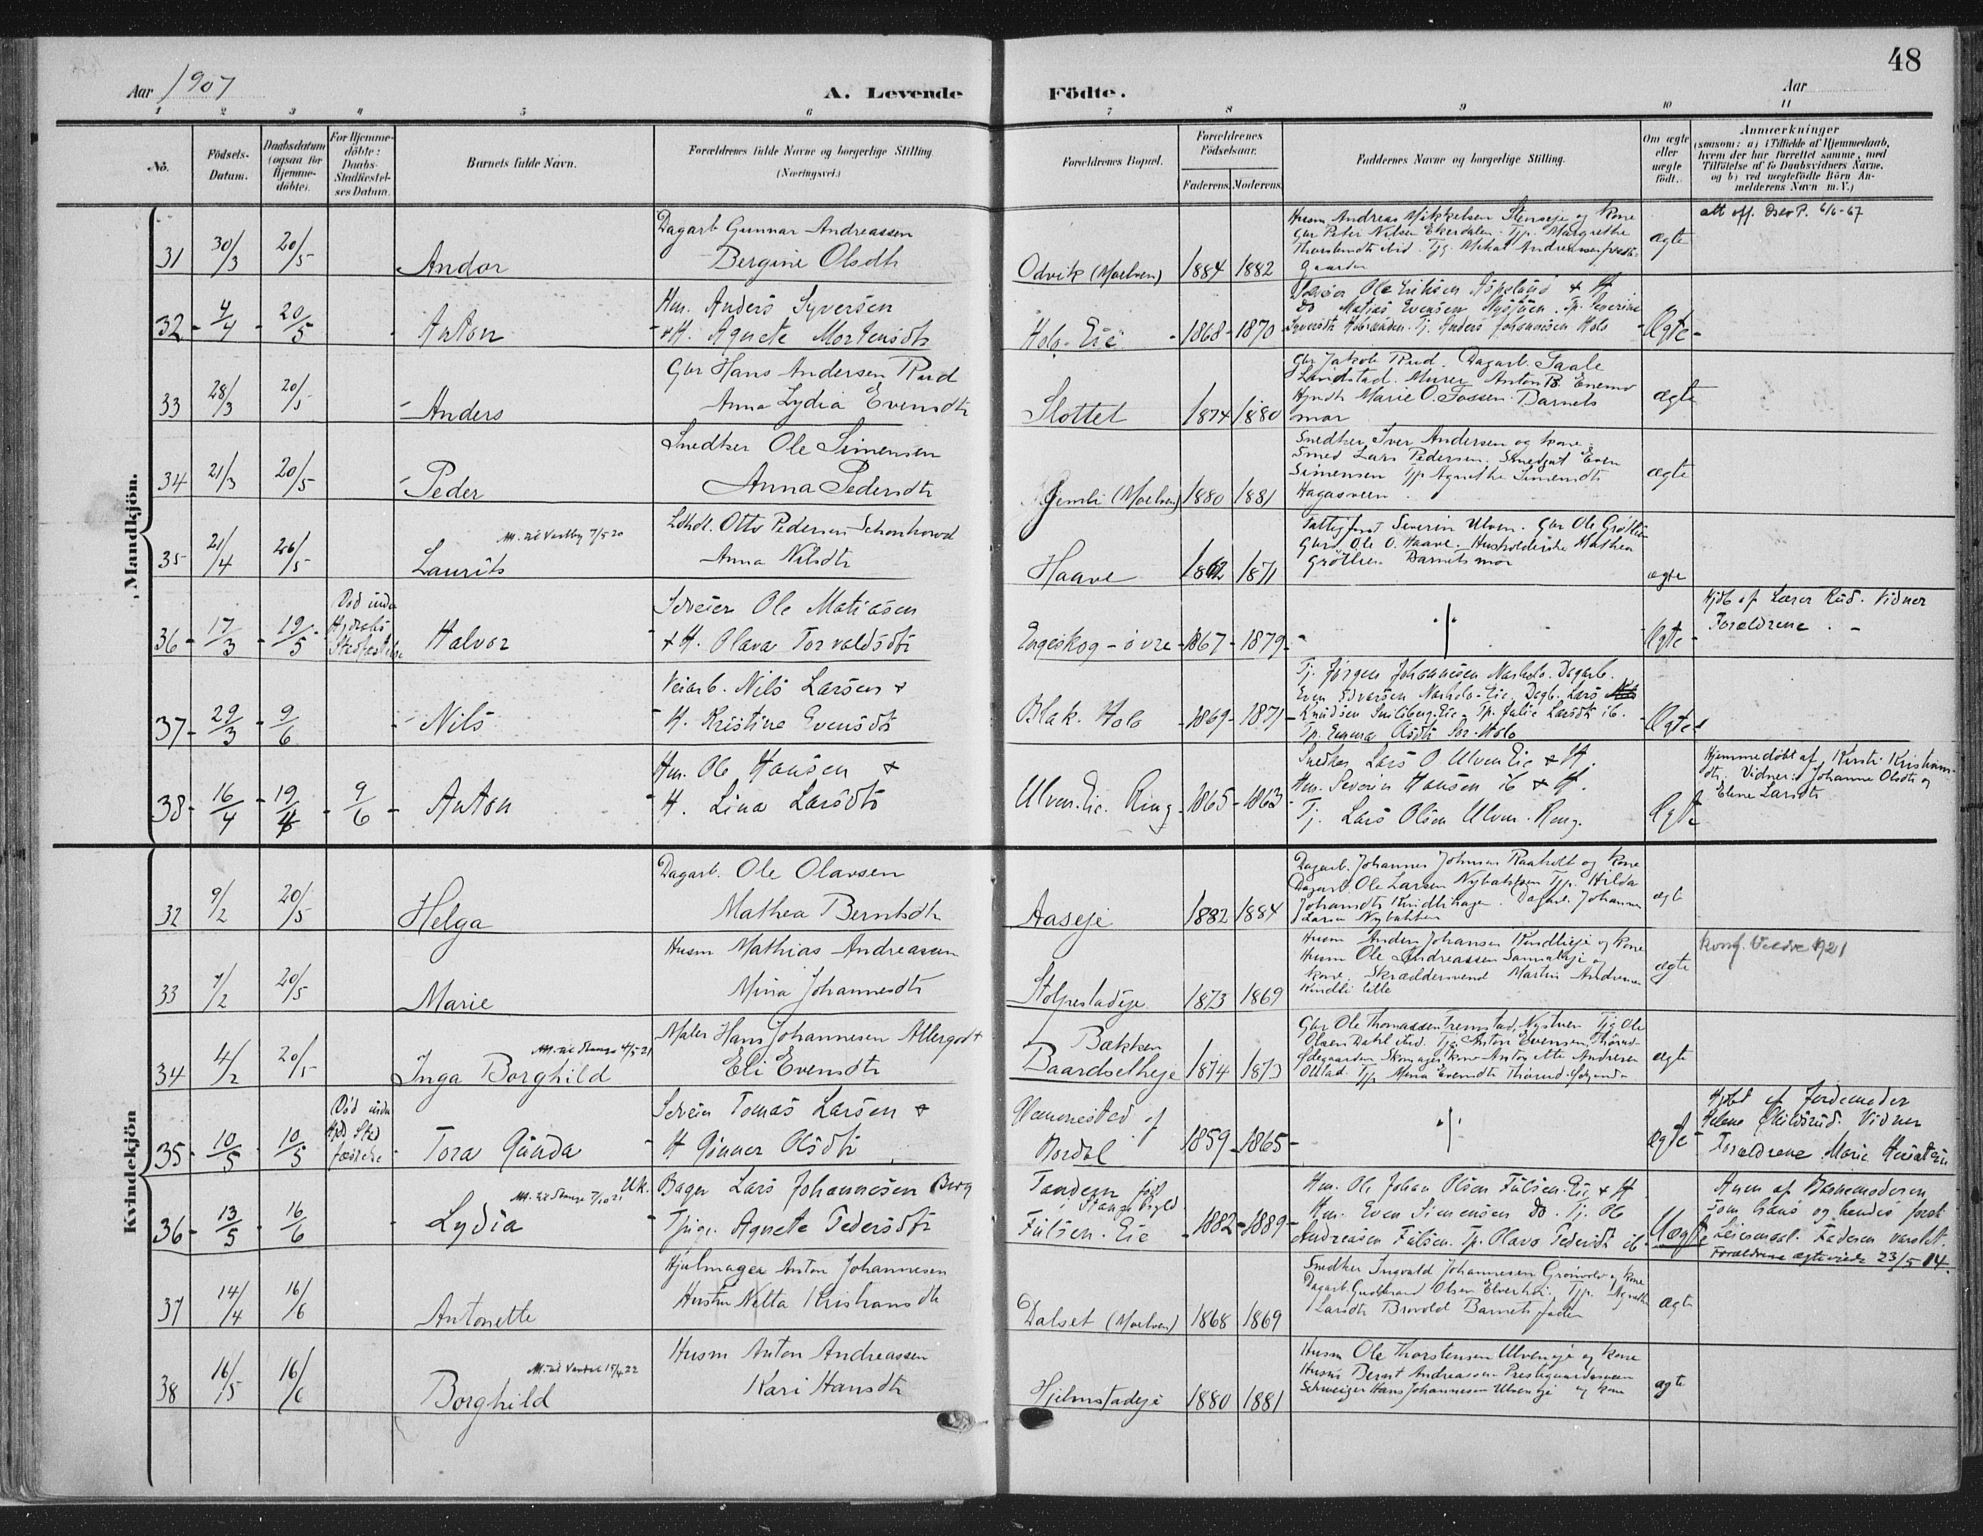 48
Aar 1907
A. Levende
Födte.
Aar
1 2 3 4 5 6 7 8 9 10 11
No.
Födsels-Datum.
Daabsdatum (ogsaa for Hjemmedöbte).
For Hjemmedöbte: Daabs-Stadfæstelses Datum.
Barnets fulde Navn.
Forældrenes fulde Navne og borgerlige Stilling (Næringsvei.)
Forældrenes Bopæl.
Forældrenes Födselsaar.
Faderens. Moderens.
Faddernes Navne og borgerlige Stilling.
Om ægte eller uægte födt.
Anmærkninger
(saasom: a) i Tilfælde af Hjemmedaab, hvem der har forrettet samme, med Tilföielse af to Daabsvidners Navne, og b) ved uægtefödte Börn Anmelderens Navn m. V.)
Mandkjön.
31 30/3 20/5 Andor
Dagarb Gunnar Andreassen
Bergine Olsdtr
Odvik (Moelven) 1884 1882
Husm Andreas Mikkelsen Stenseje og Kone
Gbr Peter Nilsen Ekerdalen. Tjp. Margrethe
ægte
att off. 6/6-67
32 - 4/4 - 20/5 - Anton
Hm. Anders Syversen
+ H. Agnete Mortensdtr
Holo-Eie - 1868 - 1870
Ole Eriksen &amp; H
Do Matias Evensen Tp. Severine
Tj. Anders Johannesen Holo
- Ægte -
33 28/3 20/5 - Anders
Gbr Hans Andersen Rud
Anna Lydia Evensdtr
Slottet 1874 1880
Gbr Jakob Rud. Dagarb. Paale
Lundstad. Murer Anton B Enemo
Marie O. Fossen. Barnets
mor
ægte
34 21/3 20/5 - Peder
Snedker Ole Simensen
Anna Pedersdtr
Gjemli (Moelven) 1880 1881
Snedker Iver Andersen og kone.
Smed Lars Pedersen. Even
Simensen Tjp Agnethe Simensdtr
Hagasveen
ægte
35 21/4 26/5 Laurits
Att. til Vardby 7/5 20
Ldhdl. Otto Pedersen Schonhowd
Anna Nilsdtr
Haave 1862 1871
Fattigforst Severin Ulven. Gbr Ole Grøtlien
Gbr. Ole O. Haave. Husholderske Mathea
Grøtlien Barnets mor
ægte
36 - 17/3 - 19/5 - Død inden Hjdaabs Stadfæstelse Halvor
Selveier Ole Matiasen
+ H. Olava Torvaldsdtr
Engeskog - øvre - 1867 - 1879 -
·/·
- Ægte -
Hjdb af Lærer Rud. Vidner
Forældrene. -
37 - 29/3 - 9/6 - Nils
Veiarb. Nils Larsen +
- H. Kristine Evensdtr
Blak. Holo - 1869 - 1871 -
Tj. Jørgen Johannesen Narholo. Dagarb.
Even Edvarsen Narholo-Eie. Dagb. Lars
Knudsen Snilsberg-Eie. Tp. Julie Larsdtr ib.
Tp. Emma Olsdtr Sør-Holo
- Ægte
38 - 16/4 - 19/4 - 9/6 - Anton
Hm. Ole Hansen +
H. Lina Larsdtr
Ulven-Eie. Ring - 1865 - 1863 -
Snedker Lars O Ulven Eie + H.
Hm. Severin Hansen ib + H.
Tj. Lars Olsen Ulven. Reng.
Ægte
Hjemmedøbt af Kirsti Kristiansdtr. Vidner: Johanne Olsdtr og
Eline Larsdtr
Kvindekjön
32 9/2 20/5 Helga
Dagarb. Ole Olavsen
Mathea Berntsdtr
Aaseje 1882 1884
Dagarb. Johannes Johnsen Raaholt og Kone
Dagarb Ole Larsen Nybakken Tjp. Hilda
Johansdtr Kindlihagen. Dagarb. Johannes
Larsen Nybakken
ægte
33 7/2 20/5 Marie
Husm Mathias Andreassen
Mina Johannesdtr
Stolpestadeje 1873 1869
Husm Anders Johansen Kindlieje og Kone
Husm Ole Andreassen og
kone. Skræddersvend Martin Andresen
Kindli lille
ægte
konf. Veldre 1921
34 4/2 20/5 Inga Borghild
Att. til Stange 4/5 21
Maler Hans Johannesen Allergodt
Eli Evensdtr
Bækken
Baardsetheje 1874 1873
Gbr Ole Thomassen Fremstad, Nystuen Tjg Ole
Olsen Dahl ibid. Tjg Anton Evensen, Thorud
Ødegaarden. Skomager Anton Andresen
Ollstad. Tjp Mina Evensdtr Thorud
ægte
35 - 10/5 - 10/5 Død inden Hjd Stadfæstelse - Tora Gunda
Selveier Tomas Larsen +
H Gunner Olsdtr
Vemmestad af
Bordal 1859 - 1865 -
·/·
Ægte -
Hjdøbt af Jordemoder
Helene Skildsrud. Vidner
Forældrene. Marie
36 - 13/5 - 16/6 - Lydia
Att. til Stange 7/10 21
Uk. Bager Lars Johannesen Berg
- Tjpige. Agnete Pedersdtr
Tandem født i Stange
Fulsen-Eie - 1882 - 1889 -
Hm. Ole Johan Olsen Fulsen. Eie + H
Hm. Even Simensen Do. Tj. Ole
Andreasen Fulsen. Tp. Olava Pedersdtr ib
- Uægte
Anm af Barnemoderen
som hans og hendes første
Leiermaal. Faderen varslet.
Forældrene ægteviede 23/5 14.
37 14/4 16/6 Antonette
Hjulmager Anton Johannesen
Hustru Netta Kristiansdtr
Dalset (Moelven) 1868 1869
Snedker Ingvald Johannesen Grønvold og Kone
Dagarb Gudbrand Olsen Elverhøi. Tjp. Agnethe
Larsdtr Brovold Barnets fader
ægte
38 16/5 16/6 Borghild
Att. til 15/4 22
Husm Anton Andreassen
Kari Hansdtr
Hjelmstadeje 1880 1881
Husm Ole Thorstensen Ulveneje og Kone
Husm Bernt Andreassen Prestegaardsveen
Schweizer Hans Johannesen Ulven Eje og kone
ægte